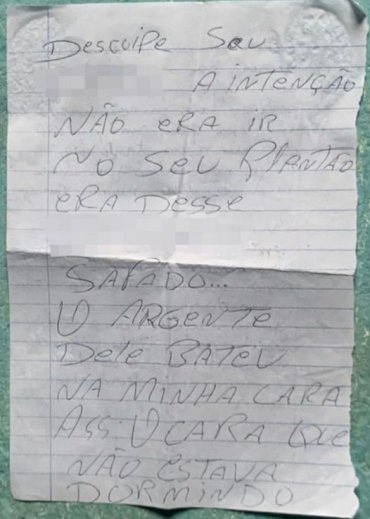 Desculpe Seu
A intenção
Não era ir
no seu Plantão
era desse
Safado...
O ARGENTE
Dele BATEU
NA MINHA CARA
Ass O CARA que
NÃO estava
DORMINDO